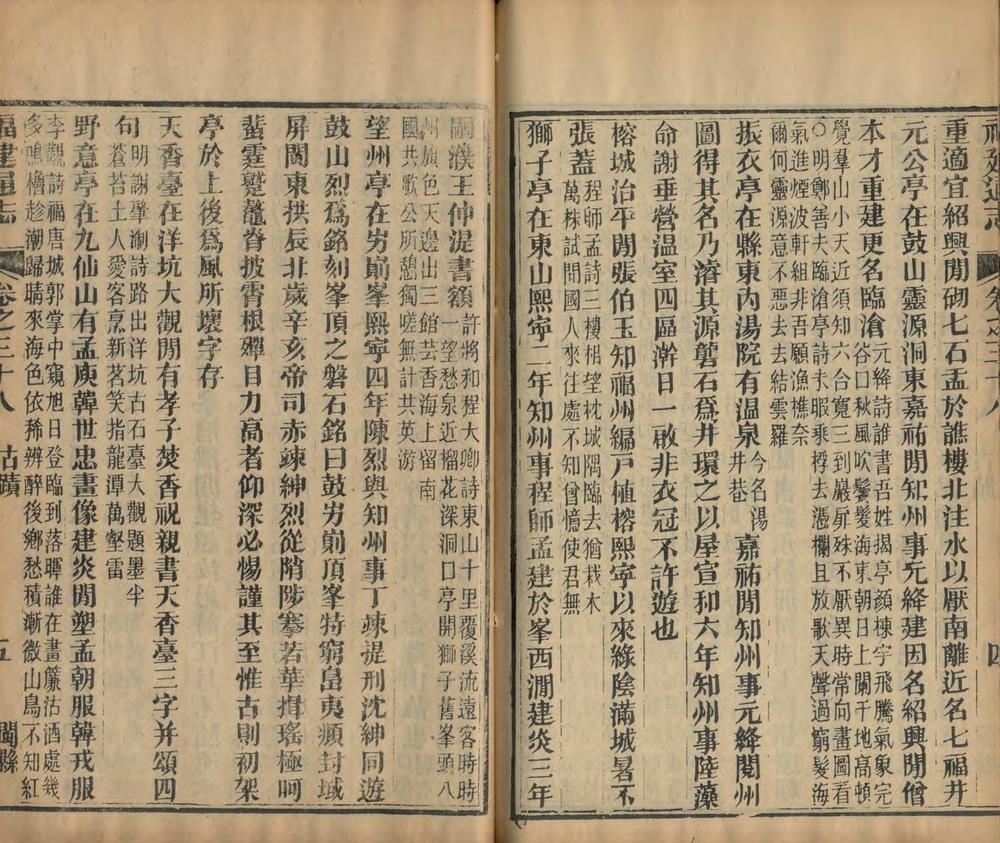 重適宜紹興閒砌七石盂於譙樓北注水以厭南離近名七福井
元公亭在鼓山靈源洞東嘉祐閒知州事元絳建因名紹興閒僧
本才重建更名臨滄
元絳詩誰書吾姓揭亭顏棟宇飛騰氣象完
谷口秋風吹鬢髮海東朝日上闌干地高頓
覺羣山小天近須知六合寬三到巖扉殊不厭異時常向畫圖看
○明鄭善夫臨滄亭詩未暇乘桴去憑欄且放歌天聲過窮髮海
氣進煙波軒組非吾願漁樵奈
爾何靈源意不惡去去結雲羅
振衣亭在縣東內湯院有溫泉
今名湯
井巷
嘉祐閒知州事元絳閱州
圖得其名乃濬其源甃石爲井環之以屋宣和六年知州事陸藻
命謝垂營溫室四區澣日一啟非衣冠不許遊也
榕城治平閒張伯玉知福州編戸植榕熙寧以來綠陰滿城暑不
張蓋
程師孟詩三樓相望枕城隅臨去猶栽木
萬株試問國人來往處不知曾憶使君無
獅子亭在東山熙寧二年知州事程師孟建於峯西澗建炎三年
嗣濮王仲湜書額
許將和程大卿詩東山十里覆溪流遠客時時
一望愁泉近榴花深洞口亭開獅子舊峯頭八
州旗色天邊出三館芸香海上留南
國共歌公所憩獨嗟無計共英游
望州亭在屴崱峯熙寧四年陳烈與知州事丁竦提刑沈紳同遊
鼓山烈爲銘刻峯頂之磐石銘曰鼓屴崱頂峯特窮島夷瀕封域
屏閩東拱辰北歲辛亥帝司赤竦紳烈從陗陟搴若華揖瑤極呵
蜚霆蹵鼇脊披霄根殫目力高者仰深必惕謹其至惟古則初架
亭於上後爲風所壞字存
天香臺在洋坑大觀閒有孝子焚香祝親書天香臺三字并頌四
句
明謝肇淛詩路出洋坑古石臺大觀題墨半
蒼苔土人愛客烹新茗笑指龍潭萬壑雷
野意亭在九仙山有孟庾韓世忠畫像建炎閒塑孟朝服韓戎服
李觀詩福唐城郭掌中窺旭日登臨到落暉誰在畫簾沽酒處幾
多鳴櫓趁潮歸晴來海色依稀辨醉後鄉愁積漸微山鳥不知紅
福建通志
卷之三十八
古蹟
五
閩縣